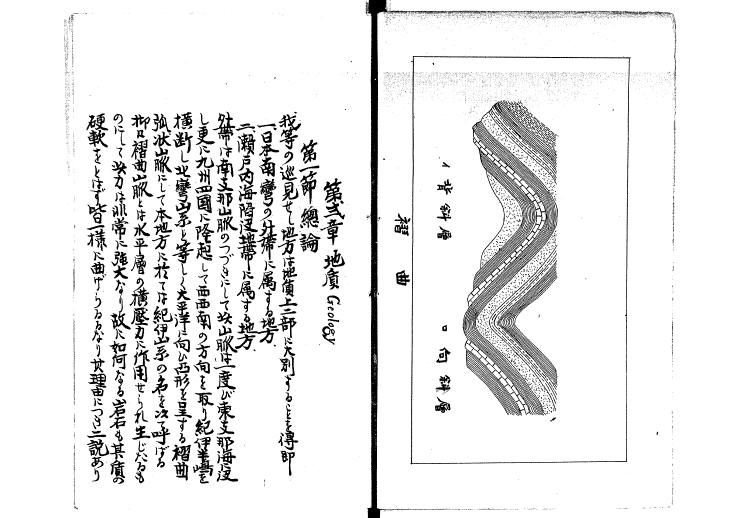 褶曲
イ 背斜層
ロ 向斜層
第弐章 地質 Geology
第一節 總論
我等の巡見せし地方は地質上二部に大別することを得即
一、日本南彎の外帶に属する地方
二、瀬戸内海陥没地帶に属する地方
外帶は南支那山脈のつづきにして此山脈は一度び東支那海に没
し更に九州四國に隆起して西西南の方向を取り紀伊半嶋を
横断し北彎山系と等しく太平洋に向ひ凸形を呈する褶曲
弧状山脈にして本地方に於ては紀伊山系の名を以て呼ばる
抑々褶曲山脈とは水平層の横壓力に作用せられ生じたるも
のにして此力は非常に強大なり故に如何なる岩石も其質の
硬軟をとはず皆一様に曲げらるるなり其理由につき二説あり